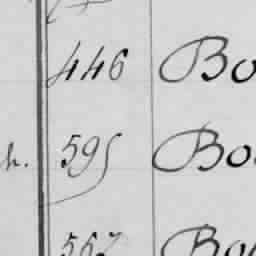 446 Bo
h. 595 Bo
567 Bo